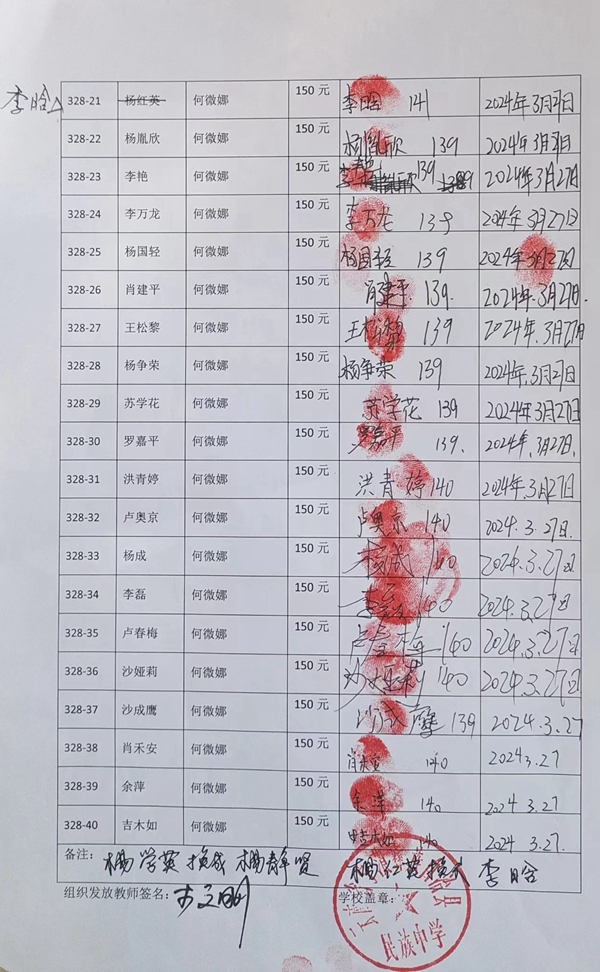 李晗 328-21 杨红英 何微娜 150 元 李晗 141 2024年3月27日
328-22 杨胤欣 何微娜 150 元 杨胤欣 139 2024年3月27日
328-23 李艳 何微娜 150 元 李艳 139 2024年3月27日
328-24 李万龙 何微娜 150 元 李万龙 139 2024年3月27日
328-25 杨国轻 何微娜 150 元 杨国轻 139 2024年3月27日
328-26 肖建平 何微娜 150 元 肖建平 139. 2024年3月27日.
328-27 王松黎 何微娜 150 元 王松黎 139 2024年.3月27日
328-28 杨争荣 何微娜 150 元 杨争荣 139 2024年.3月27日
328-29 苏学花 何微娜 150 元 苏学花 139 2024年3月27日
328-30 罗嘉平 何微娜 150 元 罗嘉平 139. 2024年.3月27日.
328-31 洪青婷 何微娜 150 元 洪青婷 140 2024年.3月27日
328-32 卢奥京 何微娜 150 元 卢奥京 140 2024.3.27日.
328-33 杨成 何微娜 150 元 杨成 140 2024.3.27日
328-34 李磊 何微娜 150 元 李磊 140 2024.3.27日
328-35 卢春梅 何微娜 150 元 卢春梅 140 2024.3.27日
328-36 沙娅莉 何微娜 150 元 沙娅莉 140 2024.3.27日
328-37 沙成鹰 何微娜 150 元 沙成鹰 139 2024.3.27
328-38 肖禾安 何微娜 150 元 肖禾安 140 2024 3.27
328-39 余萍 何微娜 150 元 余萍 140 2024 3.27
328-40 吉木如 何微娜 150 元 吉木如 140 2024 3.27.
备注： 杨学英换成杨静贤 杨红英换成 李晗
组织发放教师签名： 学校盖章：
民族中学